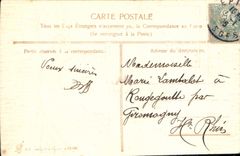 CARTE POSTALE
Tous les Pays étrangers n'acceptent pas la Correspondance au Recto
(Se renseigner à la Poste)
Partie réservée à la correspondance
Adresse du destinataire
Vœux sincères
Mademoiselle
Marie Lambalot à
Rougegoutte par
Giromagny
Ht Rhin